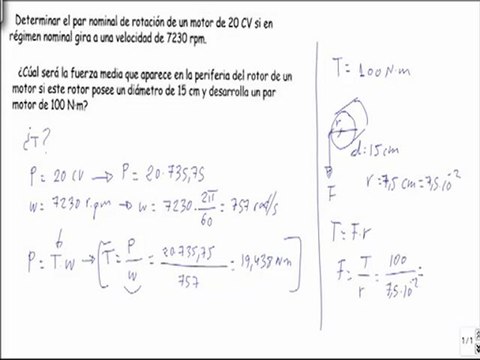 Determinar el par nominal de rotación de un motor de 20 CV si en
régimen nominal gira a una velocidad de 7230 rpm.
¿Cúal será la fuerza media que aparece en la periferia del rotor de un
motor si este rotor posee un diámetro de 15 cm y desarrolla un par
motor de 100 N·m?
¿T?
P = 20 CV → P = 20·735,75
W = 7230 r.p.m → W = 7230 · 2π/60 = 757 rad/s
P = T·W → [T = P/W = 20·735,75/757 = 19,438 N·m]
T = 100 N·m
r
d = 15 cm
F
r = 7,5 cm = 7,5·10⁻²
T = F·r
F = T/r = 100/7,5·10⁻² =
1/1